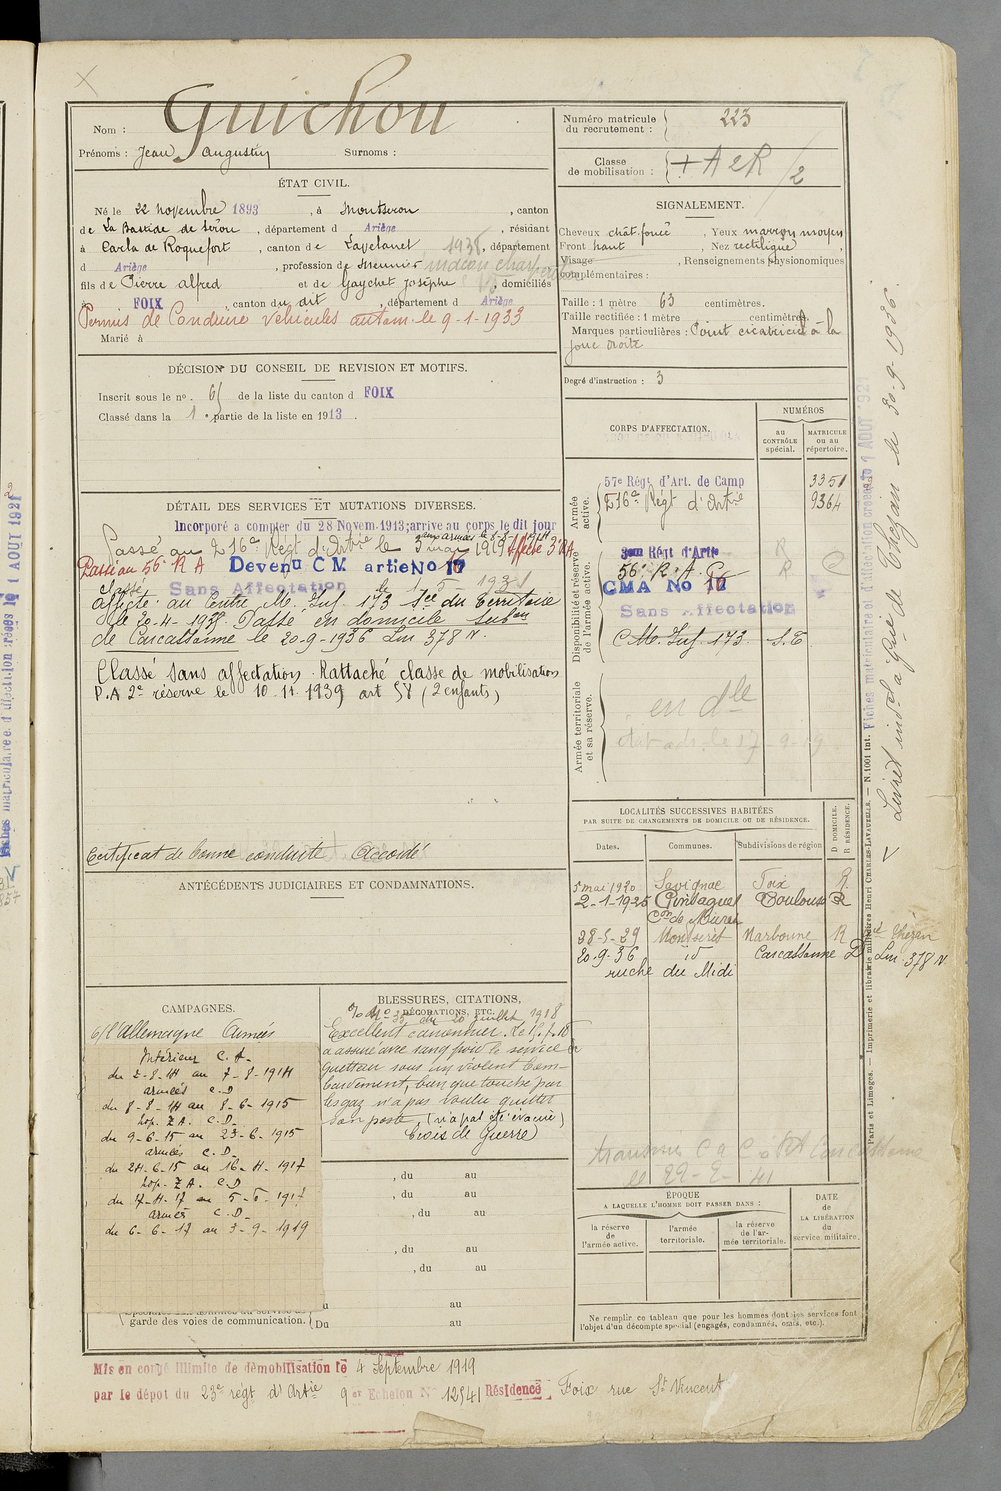 Nom : Guichou
Prénoms : Jean Augustin Surnoms :
ÉTAT CIVIL.
Né le 22 novembre 1893, à Montseron, canton
de La Bastide de Sérou, département d Ariège, résidant
à Carla de Roquefort, canton de Lavelanet, département
d Ariège, profession de meunier
fils de Pierre alfred et de Gaychet Josèphe, domiciliés
à FOIX, canton du dit, département d Ariège
Permis de Conduire véhicules autom. le 9-1-1933
Marié à
DÉCISION DU CONSEIL DE REVISION ET MOTIFS.
Inscrit sous le no. 65 de la liste du canton d FOIX
Classé dans la 1e partie de la liste en 1913.
DÉTAIL DES SERVICES ET MUTATIONS DIVERSES.
Incorporé a compter du 28 Novem. 1913; arrive au corps le dit jour
Passé au 216e Régt d'Artie le 3 mai 1919 Affecté 3e RA
Passé au 56e R A Devenu C M artie No 16
Classé Sans Affectation
affecté au Centre M. Inf. 173 Sce du Territoire
le 20-4-193 Passé en domicile subon
de Carcassonne le 20-9-1936 Lm 378 N.
Classé sans affectation. Rattaché classe de mobilisation
P.A 2e réserve le 10.11.1939 art 58 (2 enfants)
Certificat de bonne conduite Accordé
ANTÉCÉDENTS JUDICIAIRES ET CONDAMNATIONS.
CAMPAGNES.
c/ l'Allemagne Armées
Intérieur C. S.
du 2-8-14 au 7-8-1914
armées C.D
du 8-8-14 au 8-6-1915
hop. Z A. C.D.
du 9-6-15 au 23-6-1915
armées C.D.
du 24-6-15 au 16-4-1917
hop. Z A. C.D
du 17-4-17 au 5-6-1917
armées C.D.
du 6-6-17 au 3-9-1919
garde des voies de communication.
BLESSURES, CITATIONS,
DÉCORATIONS, ETC.
No 35 du 20 juillet 1918
Excellent canonnier. Le 15.7.18
a assuré avec sang froid le service de
guetteur sous un violent bom-
bardement, bien que touché par
les gaz n'a pas voulu quitter
son poste (n'a pas été évacué)
Croix de Guerre
, du au
, du au
, du au
, du au
, du au
du au
Du au
Numéro matricule
du recrutement : 223
Classe
de mobilisation : + A 2 R / 2
SIGNALEMENT.
Cheveux chât. foncé, Yeux marron moyen
Front haut, Nez rectiligne
Visage, Renseignements physionomiques
complémentaires :
Taille : 1 mètre 63 centimètres.
Taille rectifiée : 1 mètre centimètres.
Marques particulières : Point cicatriciel à la
joue droite
Degré d'instruction : 3
CORPS D'AFFECTATION.
NUMÉROS
au CONTRÔLE spécial.
MATRICULE ou au répertoire.
Armée active.
57e Régt d'Art. de Camp 3351
216e Régt d'Artie 9364
Disponibilité et réserve de l'armée active.
3em Régt d'Artie R
56e R. A. R
CMA No 16
Sans Affectation
C M. Inf. 173 S.T.
Armée territoriale et sa réserve.
en dle
LOCALITÉS SUCCESSIVES HABITÉES
PAR SUITE DE CHANGEMENTS DE DOMICILE OU DE RÉSIDENCE.
Dates. Communes. Subdivisions de région D DOMICILE. R RÉSIDENCE.
5 mai 1920 Savignac Foix R.
2-1-1925 Pinsaguel Toulouse R
Con de Muret
28-5-29 Montseret Narbonne R
20-9-36 id Carcassonne D
ruche du Midi
et Thézan
Lm 378 N
le 22-2-41
ÉPOQUE
A LAQUELLE L'HOMME DOIT PASSER DANS :
la réserve de l'armée active.
l'armée territoriale.
la réserve de l'armée territoriale.
DATE DE LA LIBÉRATION du service militaire.
Ne remplir ce tableau que pour les hommes dont les services font
l'objet d'un décompte spécial (engagés, condamnés, omis, etc.).
Mis en congé illimité de démobilisation le 4 Septembre 1919
par le dépôt du 23e régt d'Artie 9er Echelon No 12541 Résidence Foix rue St Vincent
Paris et Limoges. — Imprimerie et librairie militaires Henri CHARLES-LAVAUZELLE. — N. 1001 int.